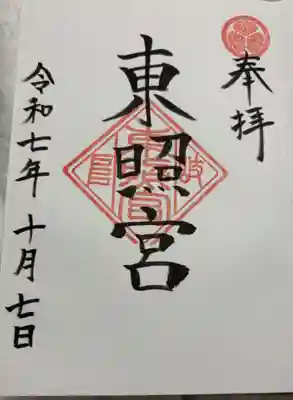 奉拝
東照宮
令和七年 十月 七日